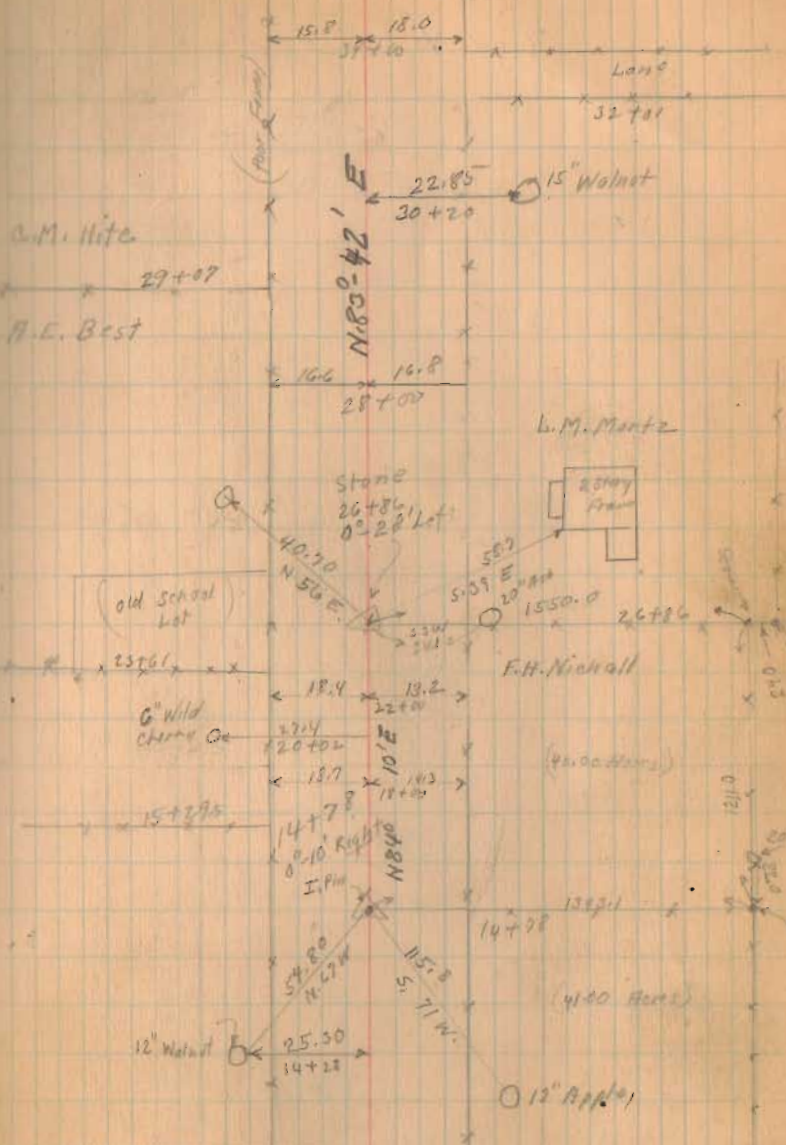 15.8 18.0
Lane
32+01
(Poor Farm)
22.85 15" Walnut
30+20
N.83°-42' E
C.M. Hite
29+07
A.E. Best
16.6 16.8
28+00
L.M. Mentz
2 Story
Frame
Stone
26+86
0°-28' Left
40.70
N.56 E.
55.7
S.39 E
20" App
1550.0 26+86
(old School
Lot)
23+61
F.H. Nichall
18.4 13.2
22+00
6" Wild
Cherry
27.4
20+02
N84° 10' E
(40.00 Acres)
18.7 14.3
18+00
15+295
14+78
0°-10' Right
I. Pin
14+78
54.80
N.67 W
115.8
S. 71 W.
(41.00 Acres)
12" Walnut 25.30
14+28
12" Apple